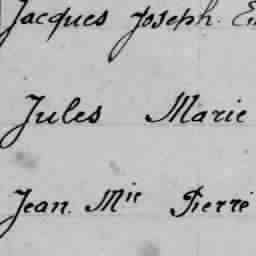 Jacques Joseph.
Jules Marie
Jean. Mie Pierre